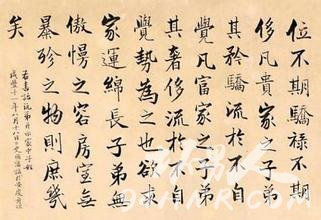 位不期驕祿不期
侈凡貴家之子弟
其矜驕流於不自
覺凡富家之子弟
其奢侈流於不自
覺勢為之也欲求
家運綿長子弟無
傲慢之容房室無
暴殄之物則庶幾
矣
咸豐十一年八月十